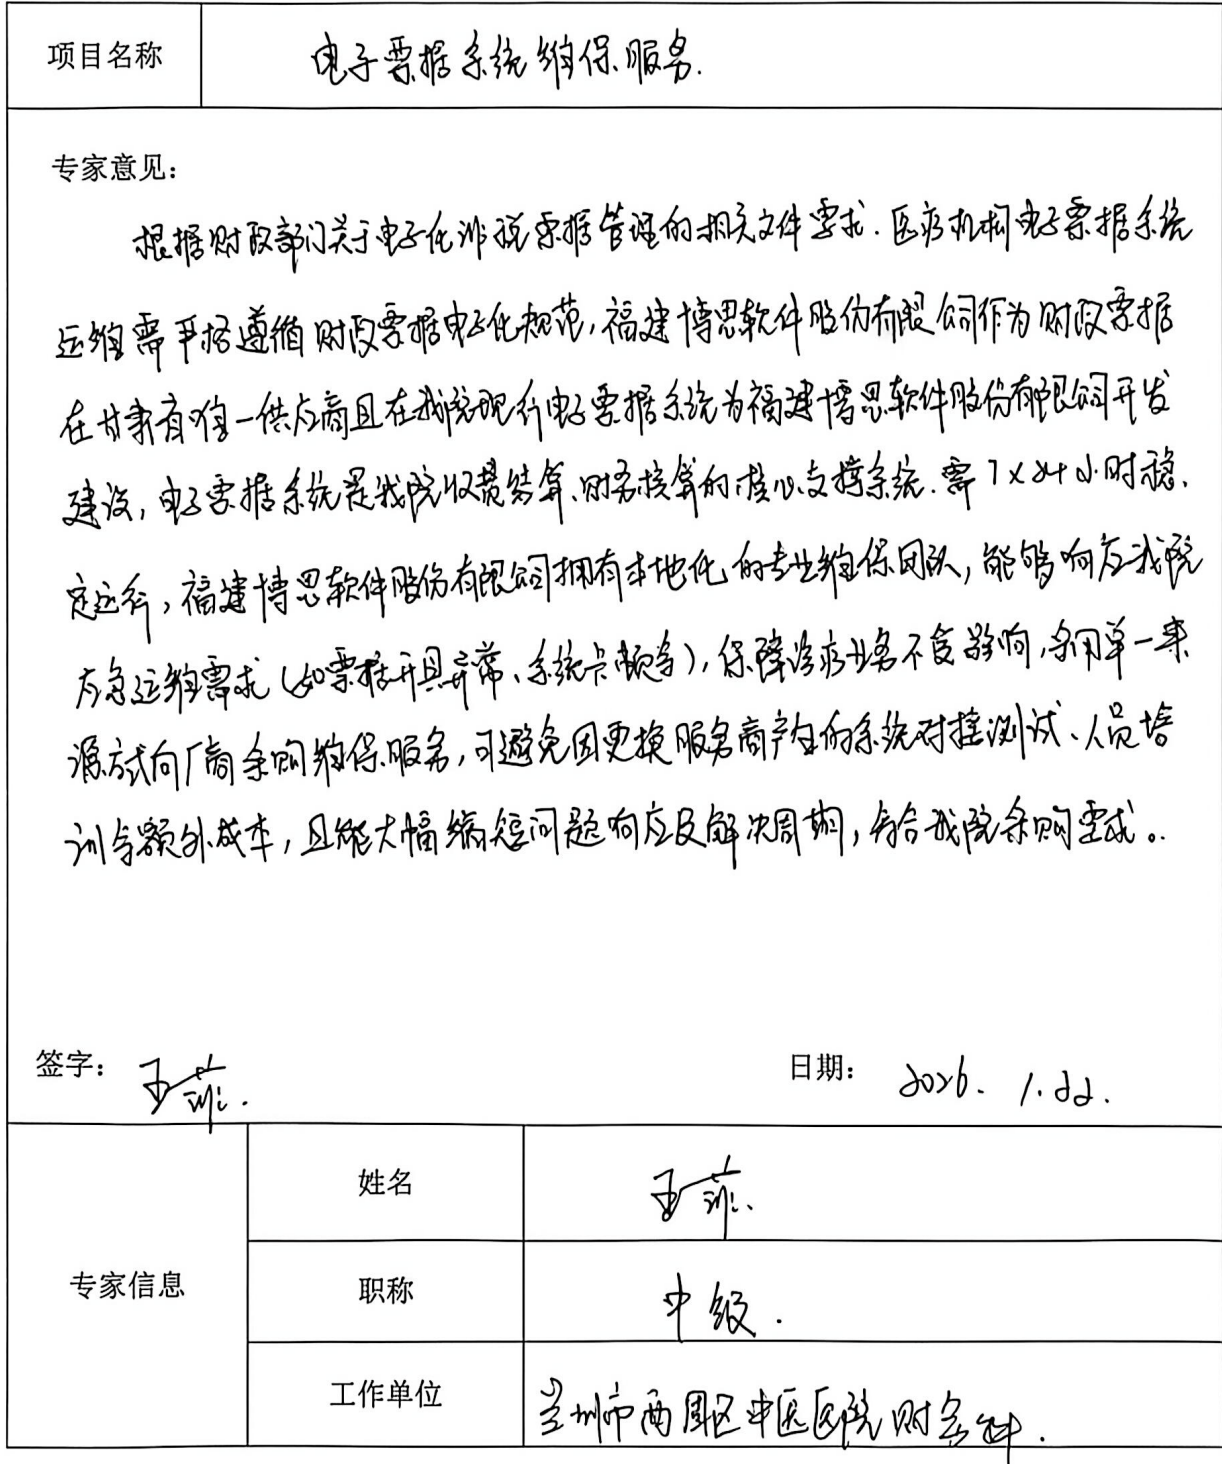 项目名称
电子票据系统维保服务.
专家意见：
根据财政部门关于电子化涉税票据管理的相关文件要求.医疗机构电子票据系统
运维需严格遵循财政票据电子化规范,福建博思软件股份有限公司作为财政票据
在甘肃省唯一供应商且在我院现行电子票据系统为福建博思软件股份有限公司开发
建设,电子票据系统是我院收费结算、财务核算的核心支撑系统.需7×24小时稳
定运行,福建博思软件股份有限公司拥有本地化的专业维保团队,能够响应我院
应急运维需求(如票据开具异常、系统卡顿等),保障诊疗业务不受影响,采用单一来
源方式向厂商采购维保服务,可避免因更换服务商产生的系统对接测试、人员培
训等额外成本,且能大幅缩短问题响应及解决周期,符合我院采购要求。
签字：
王
日期：
2026. 1.22.
专家信息
姓名
王
职称
中级.
工作单位
兰州市西固区中医医院财务科.